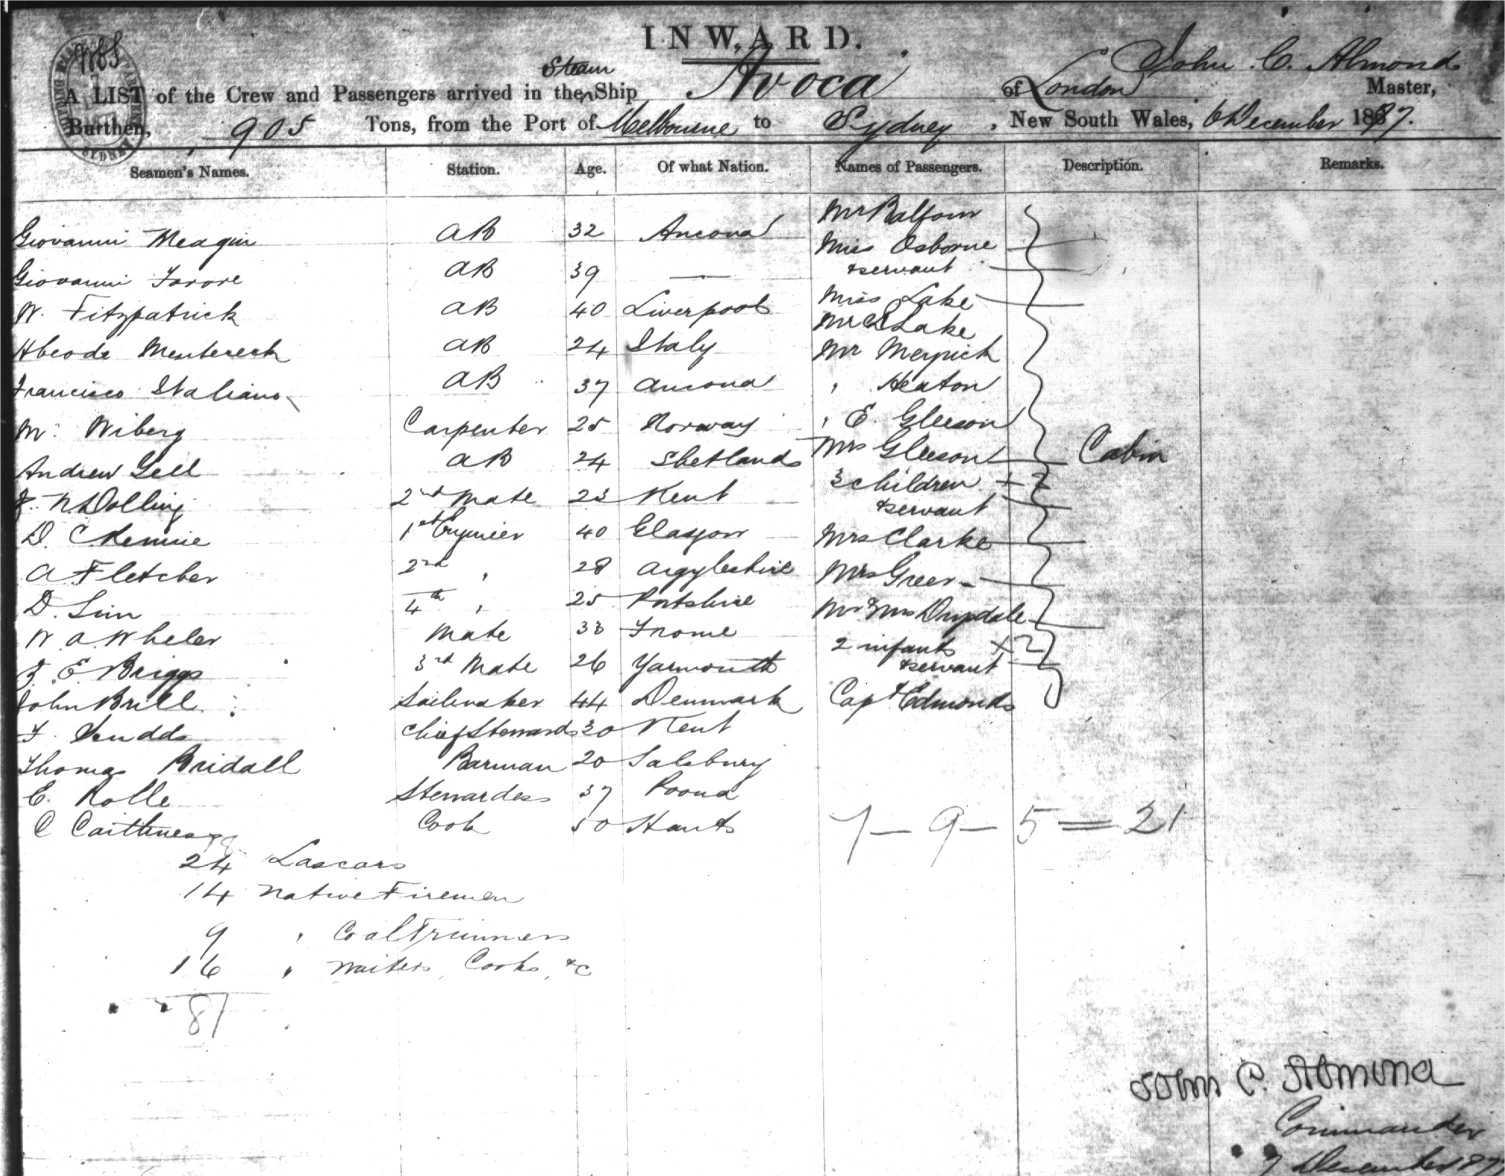 INWARD.
John C. Almond
A LIST of the Crew and Passengers arrived in the Steam Ship Avoca of London Master,
Burthen, 905 Tons, from the Port of Melbourne to Sydney, New South Wales, 6 December 1877.
Seamen's Names. Station. Age. Of what Nation. Names of Passengers. Description. Remarks.
Mr Balfour
Giovanni AB 32 Ancona
Miss Osborne
Giovanni AB 39 — & servant
W. Fitzpatrick AB 40 Liverpool Miss Lake
Mr Lake
AB 24 Italy Mr
Francisco Italiano AB 37 Ancona " Heaton
M. Wiberg Carpenter 25 Norway " E. Gleeson
Andrew Gell AB 24 Shetlands Mrs Gleeson Cabin
3 children
Dolling 2nd Mate 23 Kent & servant
D. C. Rennie 1st Engineer 40 Glasgow Mrs Clarke
A Fletcher 2nd " 28 Argyleshire Mrs Greer
D. Sim 4th " 25 Mr & Mrs Drysdale
W A Wheler Mate 33 Frome 2 infants
E Briggs 3rd Mate 26 Yarmouth & servant
John Brill Sailmaker 44 Denmark Capt Edmonds
F. Chief Steward 30 Kent
Thomas Bridall Barman 20 Salsbury
E. Rolle Stewardess 37 Poona
C Caithness Cook 50 Hants 7 — 9 — 5 = 21
24 Lascars
14 Native Firemen
9 " Coal Trimmers
16 " Waiters, Cooks, &c
81
John C. Almond
Commander
7 December 187